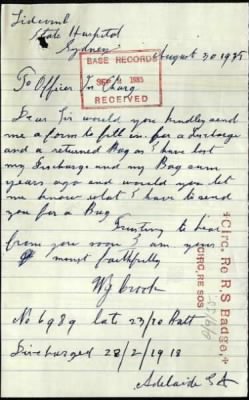 Lidcomb
State Hospital
Sydney
August 30 1935
BASE RECORDS
1935
RECEIVED
To Officer In Charg
Dear Sir would you kindley send
me a form to fill in for a Discharge
and a returned Bag as I have lost
my Discharge and my Bag sum
years ago and would you let
me know what I have to send
you for a Bag
Trusting to hear
from you soon I am your
moust faithfully
W J Crook
No 6989 late 23/10 Batt
Discharged 28/2/1918
Adelaide S A
Circ. Re R.S Badge,
CIRC, RE SOS